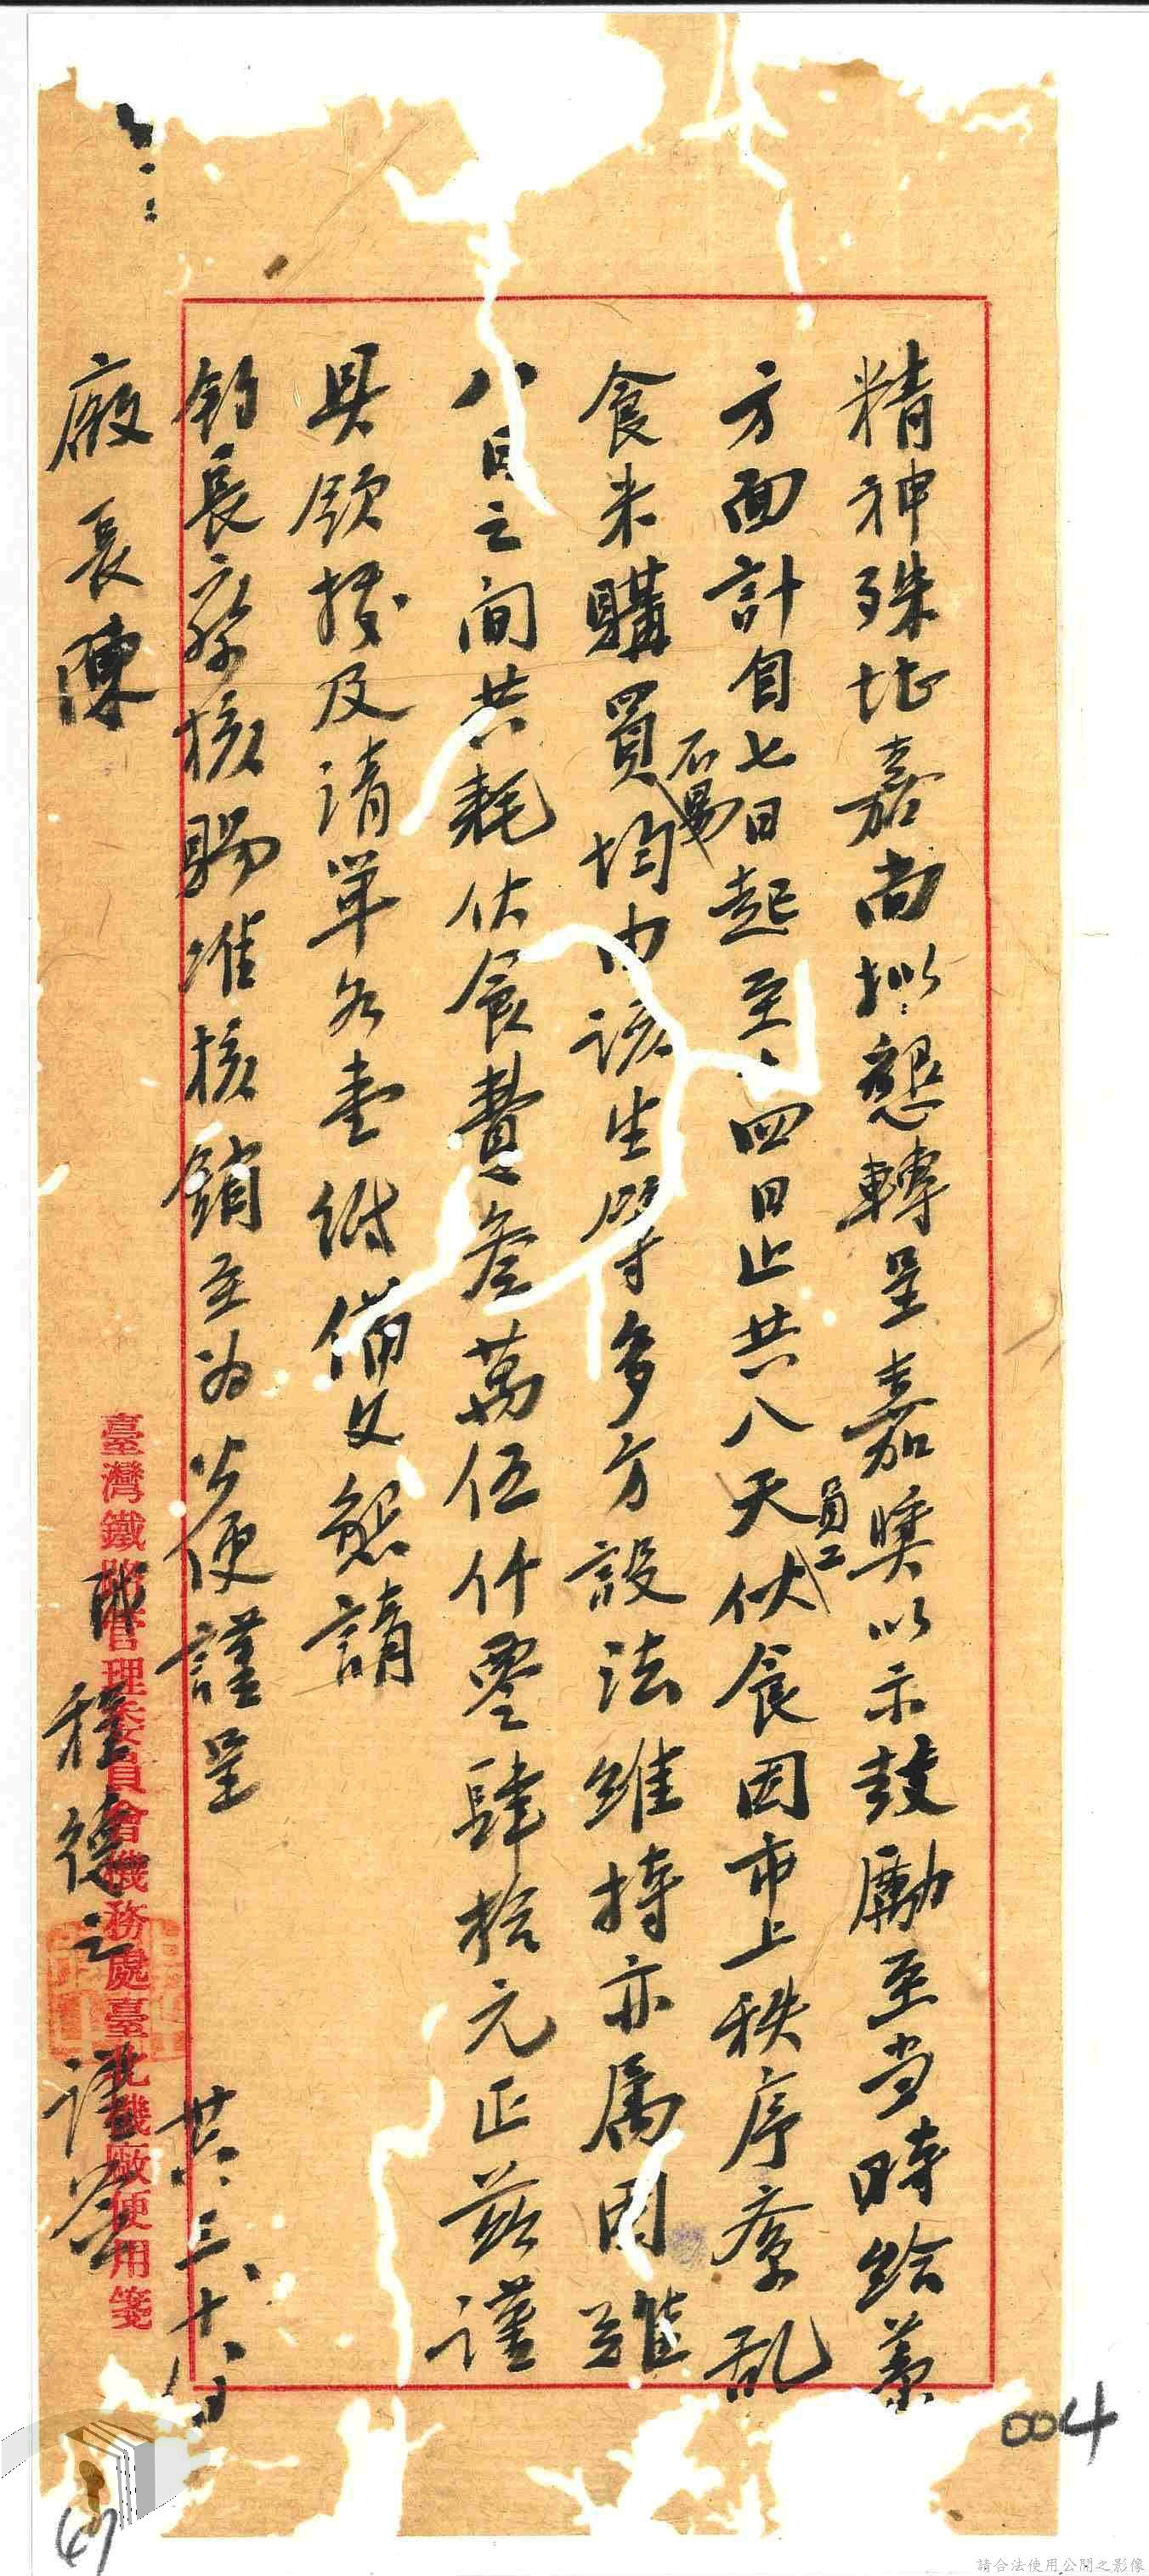 精神殊堪嘉尚擬懇轉呈嘉奬以示鼓勵至當時給養
方面計自七日起至十四日止共八天員工伙食因市上秩序紊乱
食米購買不易均由該生擘多方設法維持亦属困難
八日之间共耗伙食費叁萬伍仟零肆拾元正茲謹
具領據及清單各壹紙備文懇請
鈞長察核賜准核銷至为公便謹呈
廠長陳
程德之謹簽
卅六、三、十八日
臺灣鐵路管理委員會機務處臺北機廠便用箋
004
47
請合法使用公開之影像